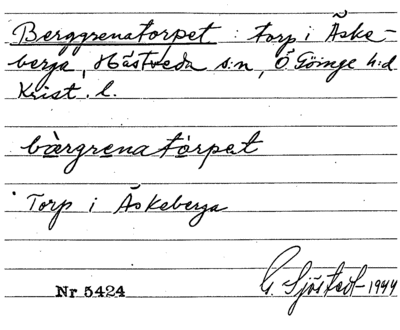 Berggrenatorpet : torp i Äske-
berga, Hästveda s:n, Ö Göinge h:d
Krist. l.
bàrgrena tòrpet
Torp i Äskeberga
G. Sjöstedt 1944
Nr 5424